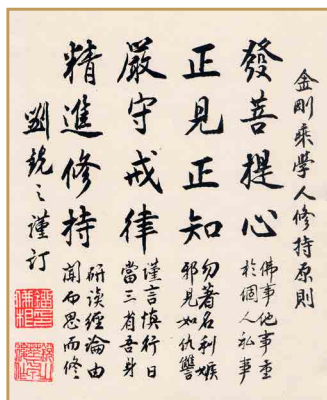 金剛乘學人修持原則
發菩提心
佛事他事重
於個人私事
正見正知
勿著名利嫉
邪見如仇讐
嚴守戒律
謹言慎行日
當三省吾身
精進修持
研讀經論由
聞而思而修
劉銳之謹訂